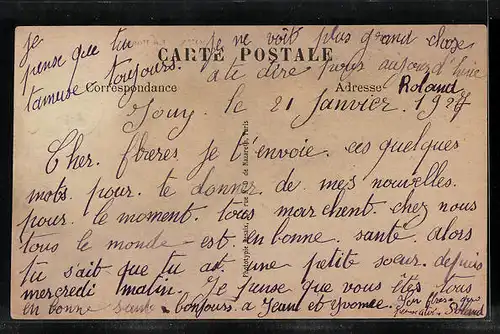 je
pense que tu
t'amuse toujours.
je ne voit plus grand chose
a te dire pour aujourd'hui
Roland
CARTE POSTALE
Correspondance
Adresse
Jouy. le 21 Janvier. 1927
Cher. frères. je t'envoie. ces quelques
mots. pour. te donner de mes nouvelles.
pour. le moment. tous marchent. chez nous
tous le monde est. en bonne. santé. alors
tu sait que tu as une petite sœur. depuis
mercredi matin. Je pense que vous êtes tous
en bonne santé. bonjours. a Jean et Yvonne.
Ton frère. qui
Roland
Phototypie rue N.-D. de Nazareth, Paris